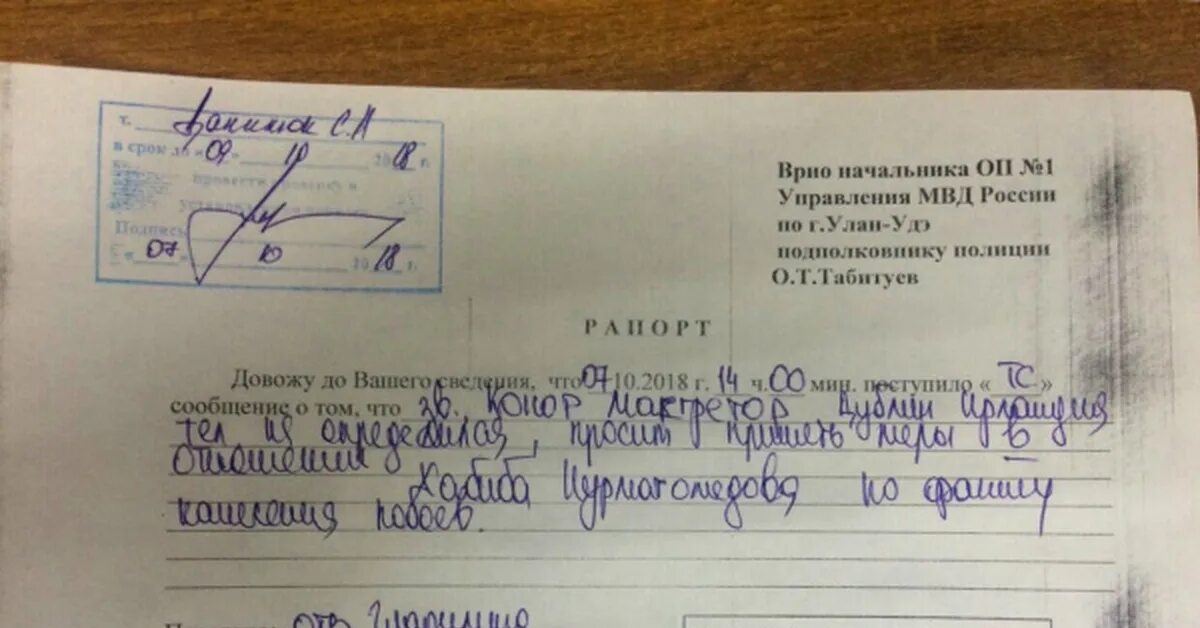 т. Данилюк С.А
в срок до «09» 10 2018 г.
провести проверку и
Подпись
« 07 » 10 2018 г.
Врио начальника ОП №1
Управления МВД России
по г.Улан-Удэ
подполковнику полиции
О.Т.Табитуев
РАПОРТ
Довожу до Вашего сведения, что 07.10.2018 г. 14 ч. 00 мин. поступило « ТС »
сообщение о том, что зв. Конор Макгрегор Дублин Ирландия
тел не определился, просит принять меры в
отношении
Хабиба Нурмагомедова по факту
нанесения побоев.